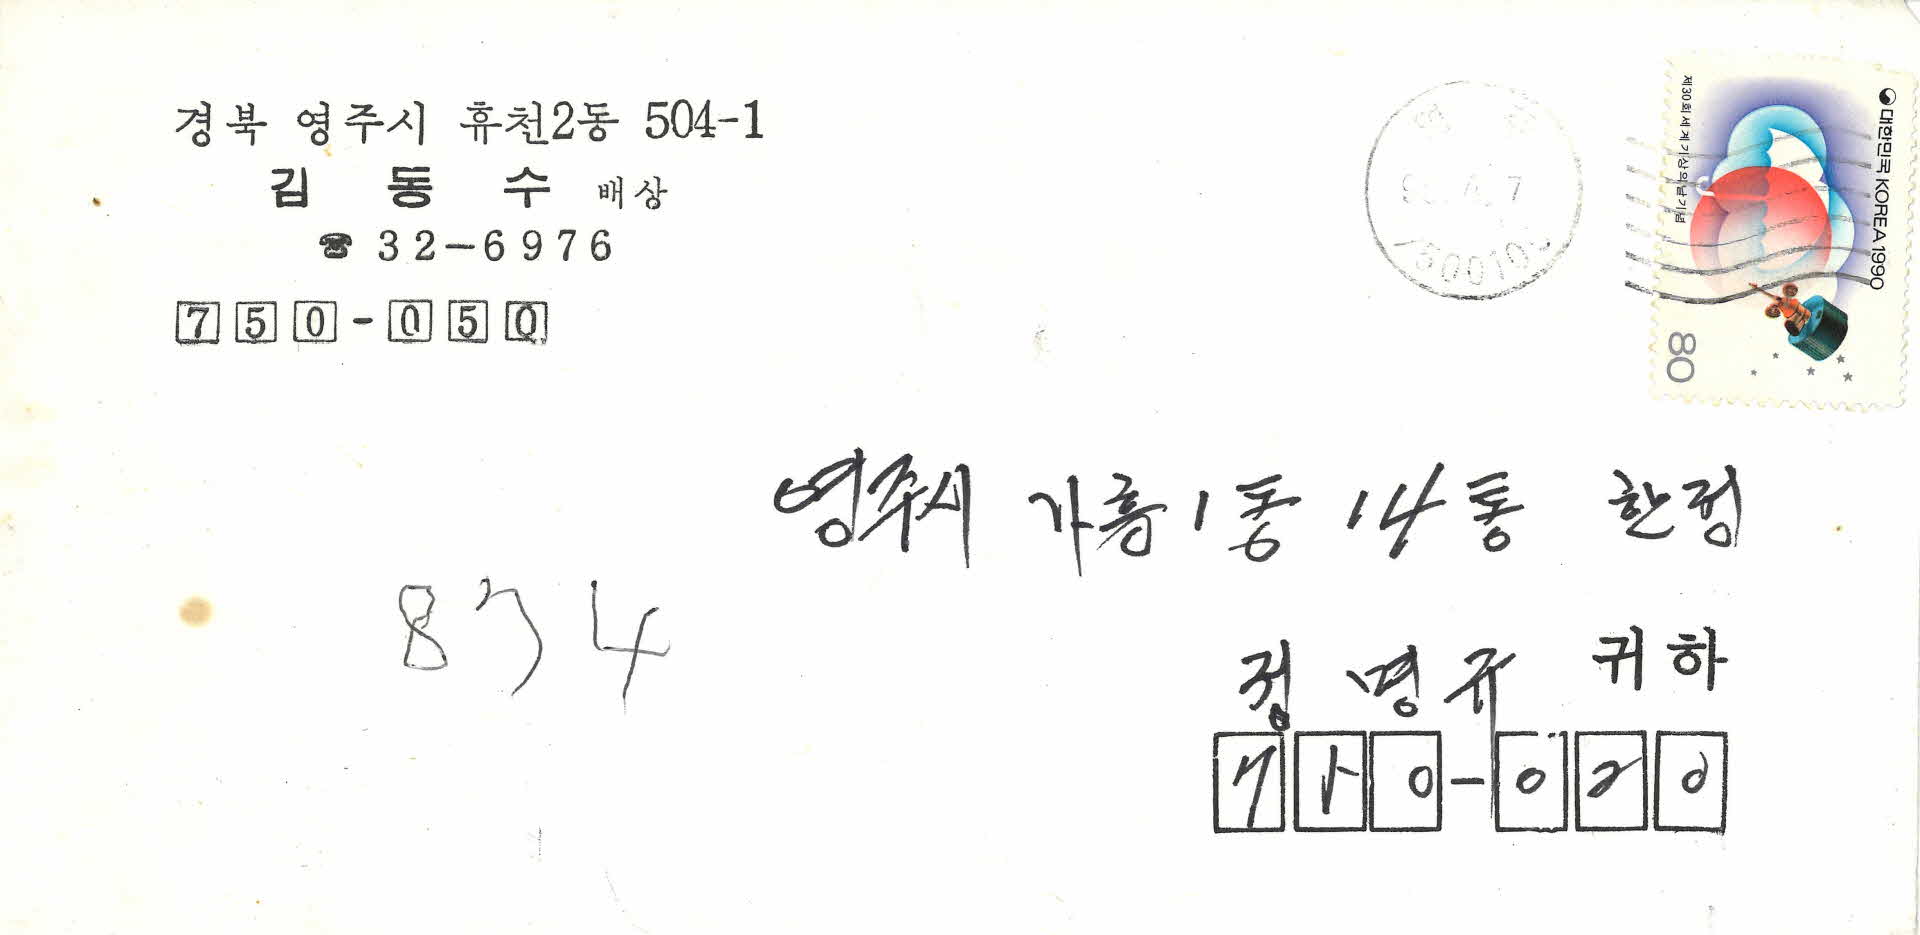 경북 영주시 휴천2동 504-1
김동수 배상
☎ 32-6976
750-050
제30회 세계기상의날기념
대한민국 KOREA 1990
80
영주시 가흥1동 14통 한정
정명규 귀하
750-020
874